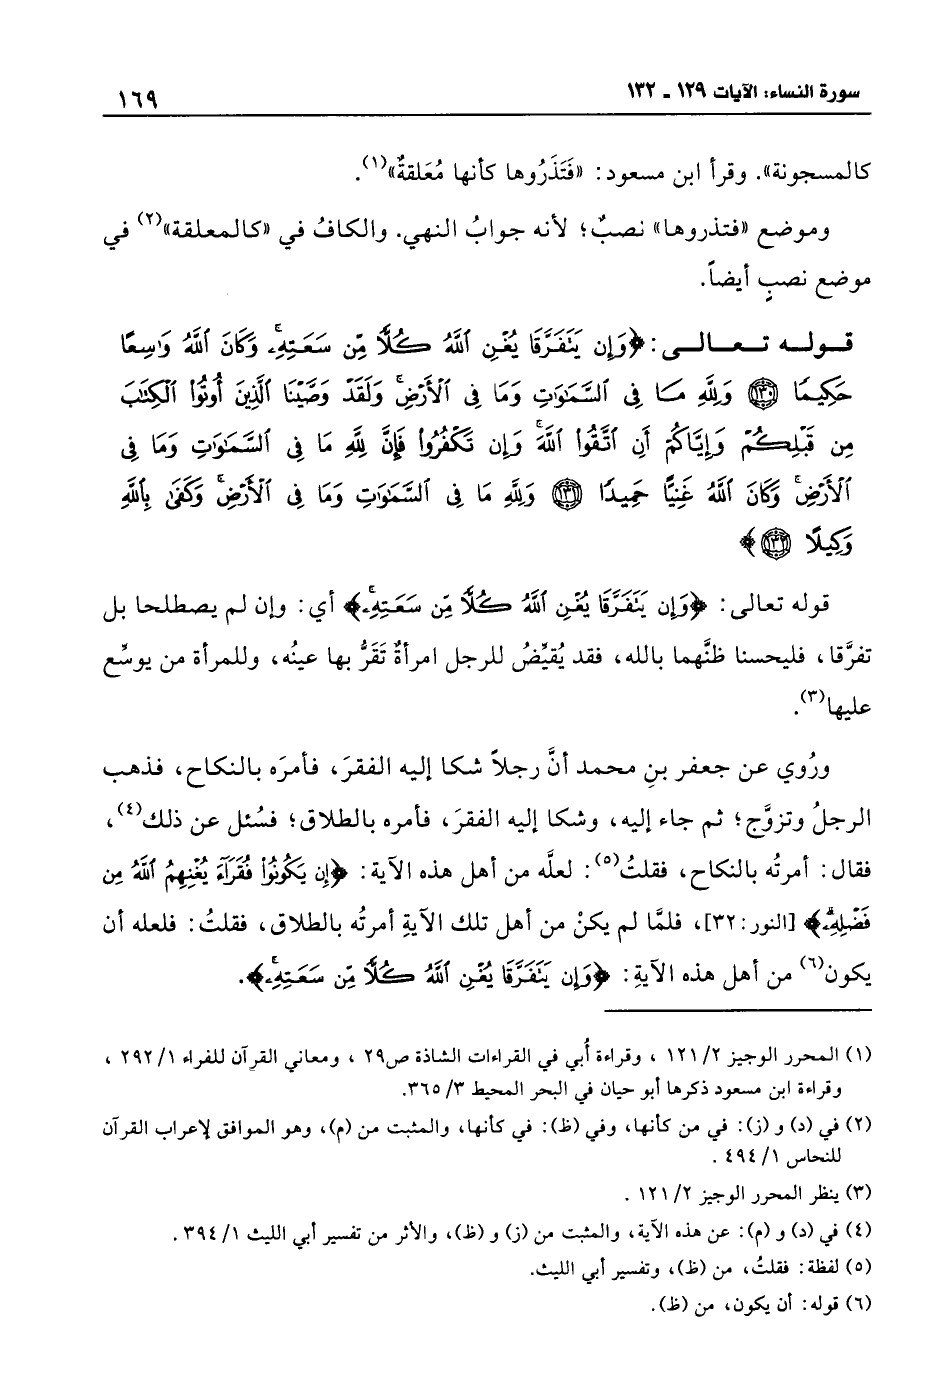 سورة النساء: الآيات ١٢٩ ـ ١٣٢
١٦٩
كالمسجونة». وقرأ ابن مسعود: «فَتَذَرُوها كأنها مُعَلقةٌ»(١).
وموضع «فتذروها» نصبٌ؛ لأنه جوابُ النهي. والكافُ في «كالمعلقة»(٢) في
موضع نصبٍ أيضاً.
قـولـه تـعـالـى: ﴿وَإِن يَتَفَرَّقَا يُغْنِ ٱللَّهُ كُلًّا مِّن سَعَتِهِۦۚ وَكَانَ ٱللَّهُ وَٰسِعًا
حَكِيمًا ١٣٠ وَلِلَّهِ مَا فِى ٱلسَّمَٰوَٰتِ وَمَا فِى ٱلْأَرْضِۗ وَلَقَدْ وَصَّيْنَا ٱلَّذِينَ أُوتُوا۟ ٱلْكِتَٰبَ
مِن قَبْلِكُمْ وَإِيَّاكُمْ أَنِ ٱتَّقُوا۟ ٱللَّهَۚ وَإِن تَكْفُرُوا۟ فَإِنَّ لِلَّهِ مَا فِى ٱلسَّمَٰوَٰتِ وَمَا فِى
ٱلْأَرْضِۚ وَكَانَ ٱللَّهُ غَنِيًّا حَمِيدًا ١٣١ وَلِلَّهِ مَا فِى ٱلسَّمَٰوَٰتِ وَمَا فِى ٱلْأَرْضِۚ وَكَفَىٰ بِٱللَّهِ
وَكِيلًا ١٣٢﴾
قوله تعالى: ﴿وَإِن يَتَفَرَّقَا يُغْنِ ٱللَّهُ كُلًّا مِّن سَعَتِهِۦۚ﴾ أي: وإن لم يصطلحا بل
تفرَّقا، فليحسنا ظنَّهما بالله، فقد يُقيِّضُ للرجل امرأةٌ تَقَرُّ بها عينُه، وللمرأة من يوسِّع
عليها(٣).
ورُوي عن جعفر بنِ محمد أنَّ رجلاً شكا إليه الفقرَ، فأمرَه بالنكاح، فذهب
الرجلُ وتزوَّج؛ ثم جاء إليه، وشكا إليه الفقرَ، فأمره بالطلاق؛ فسُئل عن ذلك(٤)،
فقال: أمرتُه بالنكاح، فقلتُ(٥): لعلَّه من أهل هذه الآية: ﴿إِن يَكُونُوا۟ فُقَرَآءَ يُغْنِهِمُ ٱللَّهُ مِن
فَضْلِهِۦۗ﴾ [النور:٣٢]، فلمَّا لم يكنْ من أهل تلك الآيةِ أمرتُه بالطلاق، فقلتُ: فلعله أن
يكون(٦) من أهل هذه الآيةِ: ﴿وَإِن يَتَفَرَّقَا يُغْنِ ٱللَّهُ كُلًّا مِّن سَعَتِهِۦۚ﴾.
(١) المحرر الوجيز ٢/ ١٢١ ، وقراءة أُبي في القراءات الشاذة ص٢٩ ، ومعاني القرآن للفراء ١/ ٢٩٢ ،
وقراءة ابن مسعود ذكرها أبو حيان في البحر المحيط ٣/ ٣٦٥.
(٢) في (د) و (ز): في من كأنها، وفي (ظ): في كأنها، والمثبت من (م)، وهو الموافق لإعراب القرآن
للنحاس ١/ ٤٩٤ .
(٣) ينظر المحرر الوجيز ٢/ ١٢١ .
(٤) في (د) و (م): عن هذه الآية، والمثبت من (ز) و (ظ)، والأثر من تفسير أبي الليث ١/ ٣٩٤ .
(٥) لفظة: فقلتُ، من (ظ)، وتفسير أبي الليث.
(٦) قوله: أن يكون، من (ظ).